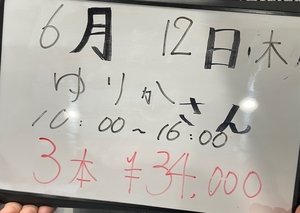 6月 12日(木)
ゆりかさん
10:00~16:00
3本 ¥34,000